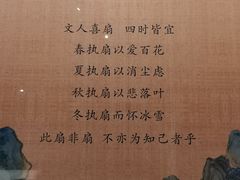 文人喜扇 四时皆宜
春执扇以爱百花
夏执扇以消尘虑
秋执扇以悲落叶
冬执扇而怀冰雪
此扇非扇 不亦为知己者乎